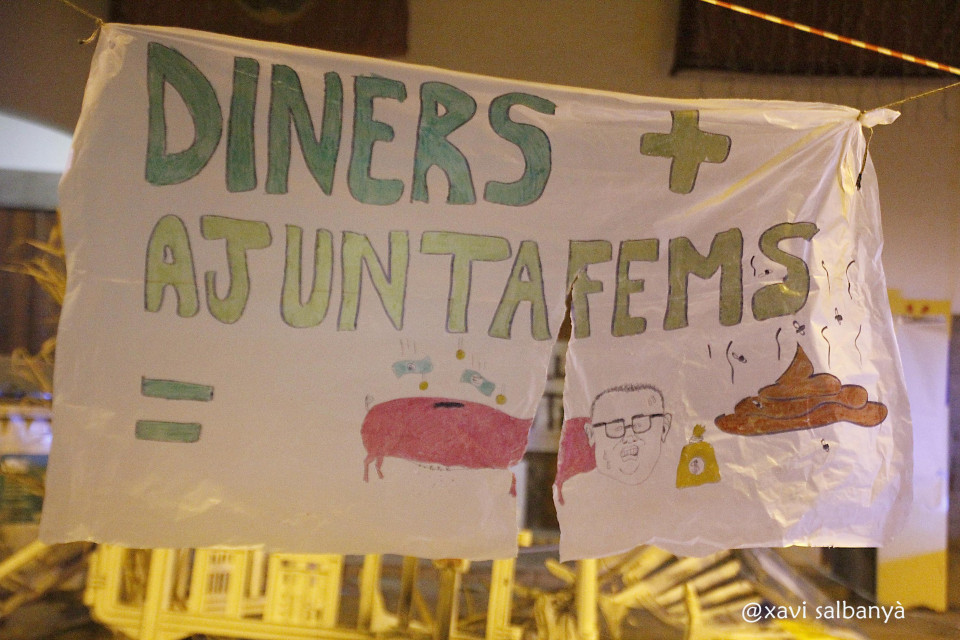 DINERS +
AJUNTAFEMS
=
@xavi salbanyà